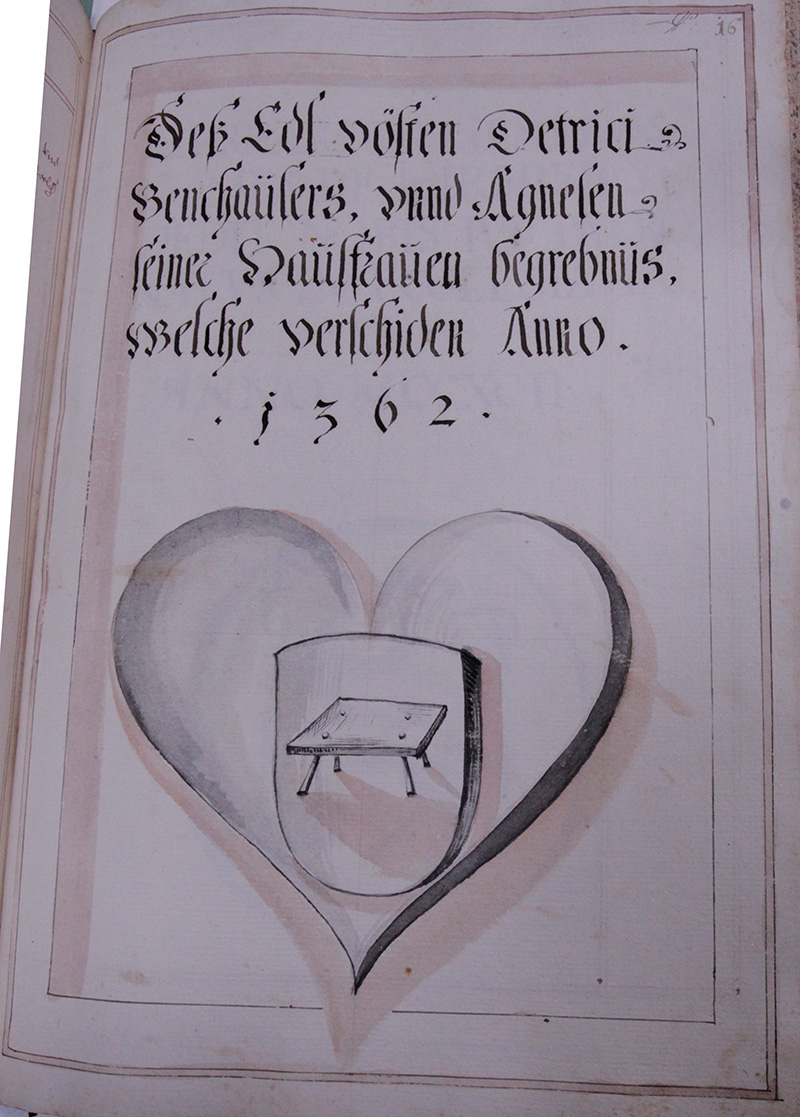 16
Deß Edl vösten Detrici
Benchaüsers, vnnd Agnesen
seiner Haüsfraüen begrebnüs,
Welche verschiden Anno.
. 1 3 6 2 .